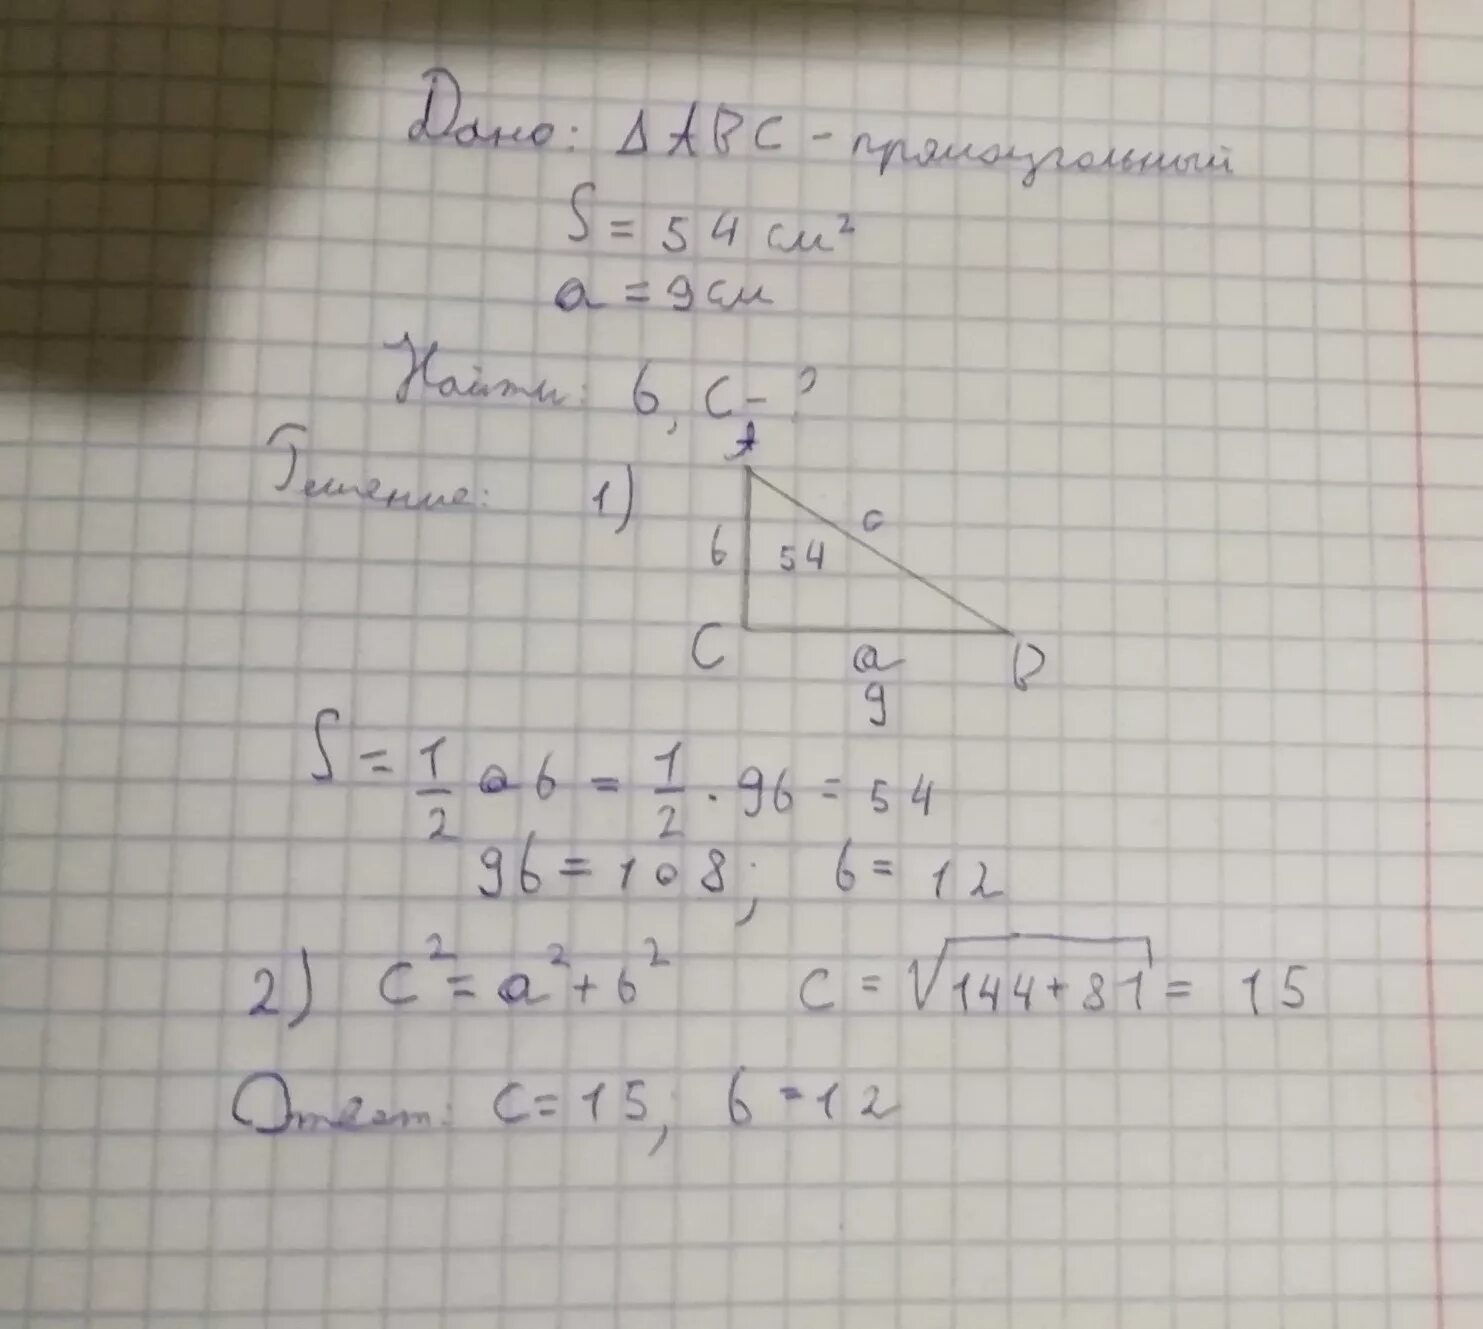 Дано: ΔABC - прямоугольный
S = 54 см²
a = 9 см
Найти: b, c - ?
Решение: 1)
A
b 54 c
C a B
9
S = 1/2 ab = 1/2 · 9b = 54
9b = 108; b = 12
2) c² = a² + b² c = √144+81 = 15
Ответ: c = 15; b = 12